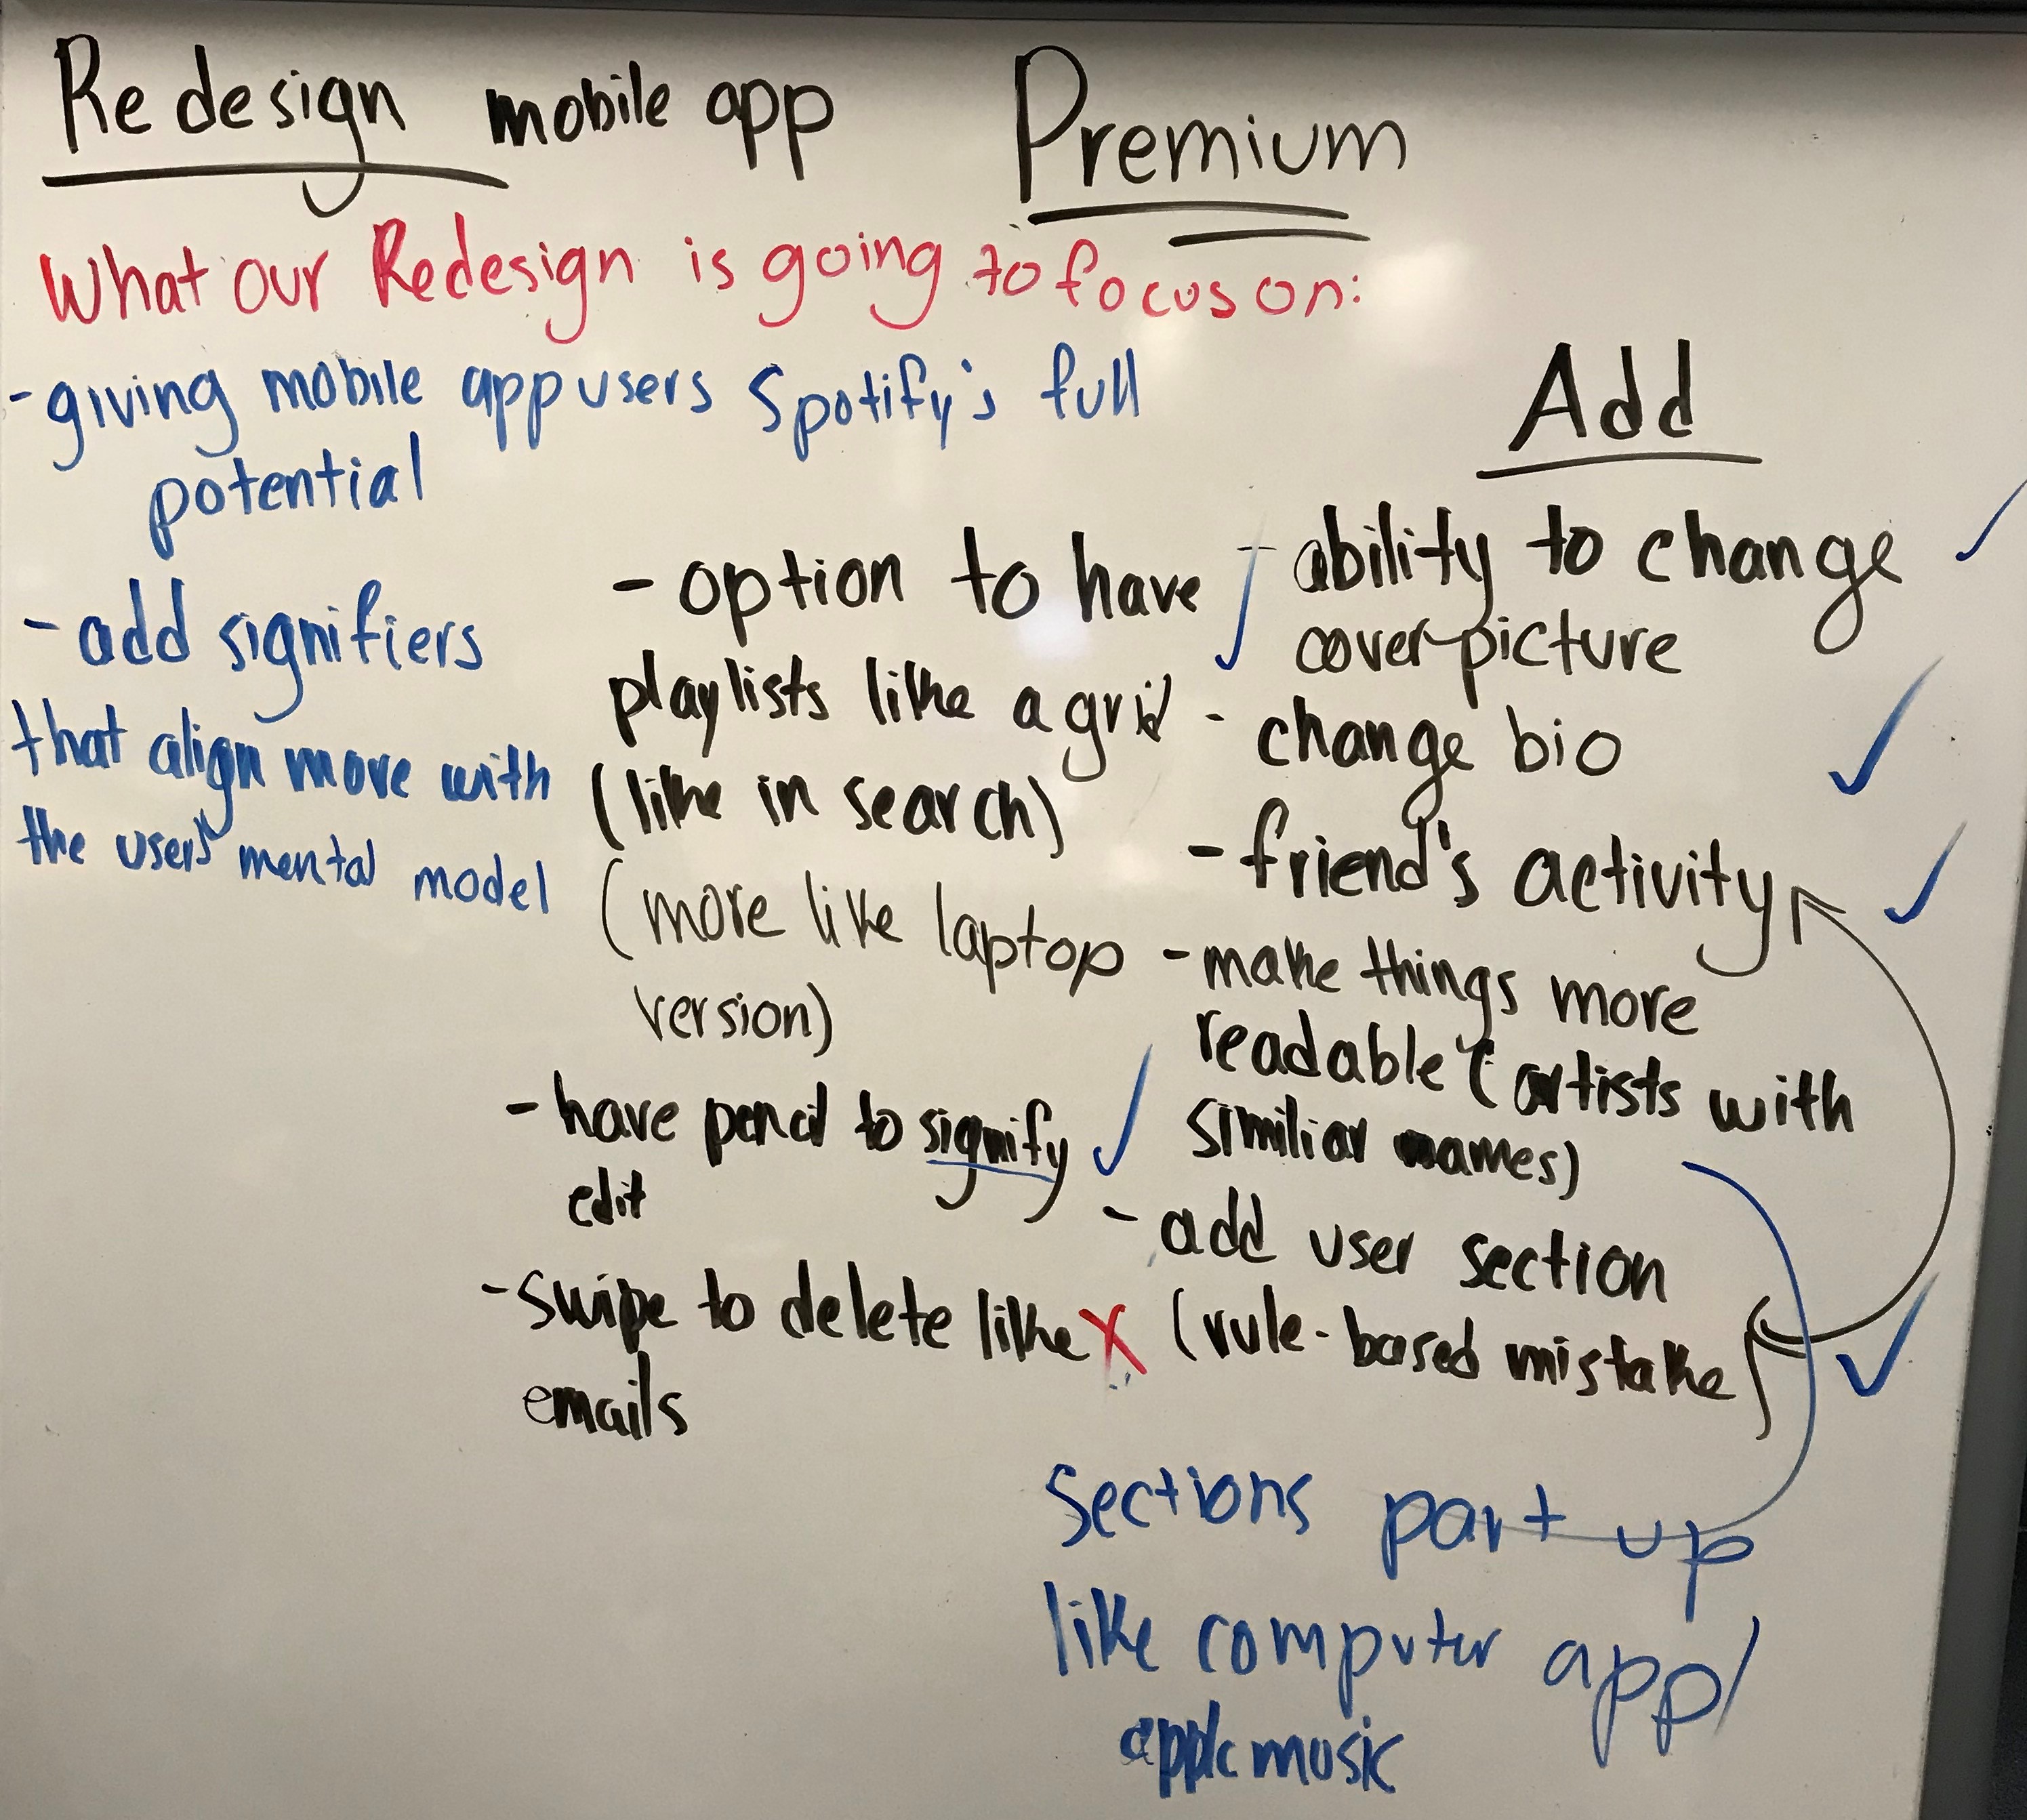 Redesign mobile app Premium
What our Redesign is going to focus on:
- giving mobile app users Spotify's full
potential
- add signifiers
that align more with
the users' mental model
- option to have
playlists like a grid
(like in search)
(more like laptop
version)
- have pencil to signify
edit
- swipe to delete like X
emails
Add
- ability to change
cover picture
- change bio
- friend's activity
- make things more
readable (artists with
similiar names)
- add user section
(rule-based mistake)
Sections part up
like computer app/
apple music